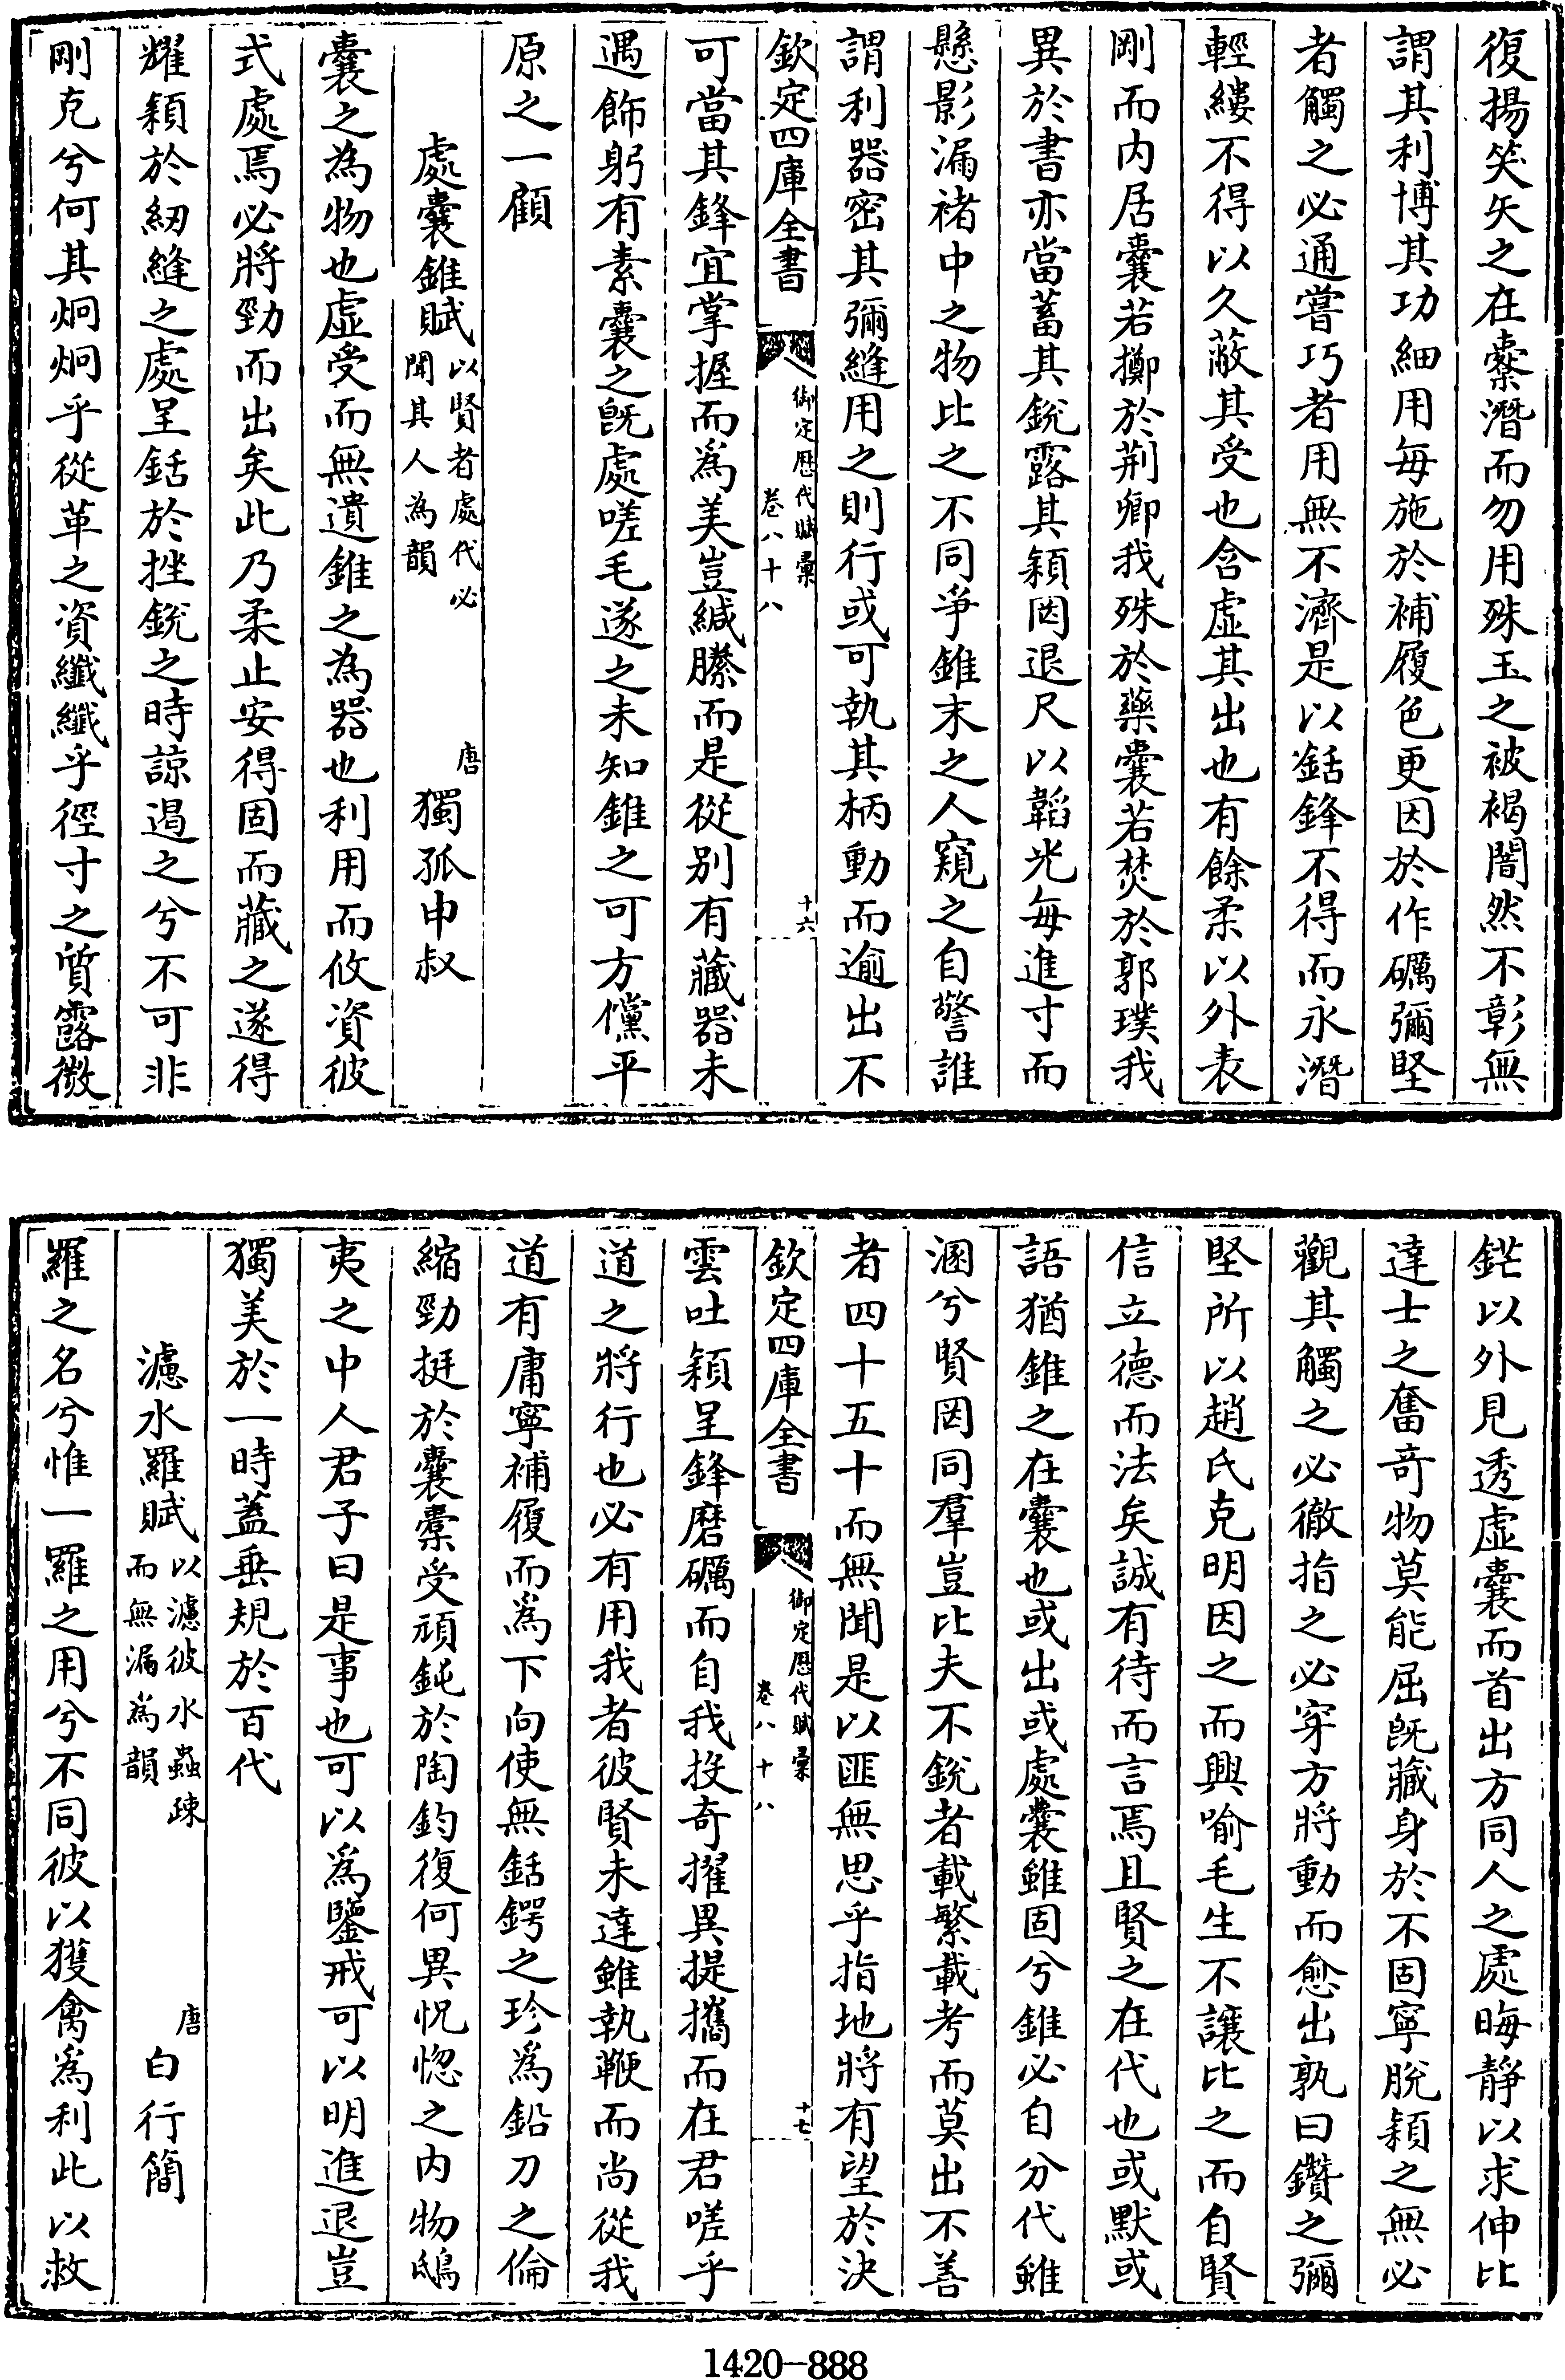 復揚笑矢之在櫜潛而勿用殊玉之被褐闇然不彰無
謂其利博其功細用每施於補履色更因於作礪彌堅
者觸之必通嘗巧者用無不濟是以銛鋒不得而永潛
輕縷不得以久蔽其受也含虛其出也有餘柔以外表
剛而内居囊若擲於荆卿我殊於藥囊若焚於郭璞我
異於書亦當蓄其銳露其穎因退尺以韜光每進寸而
懸影漏褚中之物比之不同爭錐末之人窺之自警誰
謂利器密其彌縫用之則行或可執其柄動而逾出不
欽定四庫全書
御定歷代賦彙
卷八十八
十六
可當其鋒宜掌握而爲美豈緘縢而是從别有藏器未
遇飾躬有素囊之既處嗟毛遂之未知錐之可方儻平
原之一顧
處囊錐賦 以賢者處代必
聞其人為韻
唐 獨孤申叔
囊之為物也虛受而無遺錐之為器也利用而攸資彼
式處焉必將勁而出矣此乃柔止安得固而藏之遂得
耀穎於紉縫之處呈銛於挫銳之時諒遏之兮不可非
剛克兮何其炯炯乎從革之資纖纖乎徑寸之質露微
鋩以外見透虛囊而首出方同人之處晦靜以求伸比
達士之奮奇物莫能屈既藏身於不固寧脫穎之無必
觀其觸之必徹指之必穿方將動而愈出孰曰鑽之彌
堅所以趙氏克明因之而興喻毛生不讓比之而自賢
信立德而法矣誠有待而言焉且賢之在代也或默或
語猶錐之在囊也或出或處囊雖固兮錐必自分代雖
溷兮賢罔同羣豈比夫不銳者載繁載考而莫出不善
者四十五十而無聞是以匪無思乎指地將有望於決
欽定四庫全書
御定歷代賦彙
卷八十八
十七
雲吐穎呈鋒磨礪而自我投奇擢異提攜而在君嗟乎
道之將行也必有用我者彼賢未達雖執鞭而尚從我
道有庸寧補履而爲下向使無銛鍔之珍爲鉛刀之倫
縮勁挺於囊橐受頑鈍於陶鈞復何異怳惚之内物鴟
夷之中人君子曰是事也可以爲鑒戒可以明進退豈
獨美於一時蓋垂規於百代
濾水羅賦 以濾彼水蟲疎
而無漏爲韻
唐 白行簡
羅之名兮惟一羅之用兮不同彼以獲禽爲利此以救
1420-888